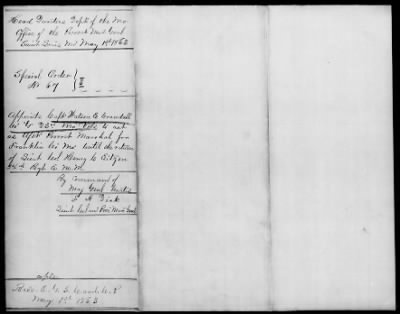 Head Quarters Dept of the Mo
Office of the Provost Mar Genl
Saint Louis Mo May 1st 1863
Special Order
No 67
II
Appoints Capt Watson E Crandall
Co "G" 33d Mo Vols to act
as Asst Provost Marshal for
Franklin Co Mo until the return
of Lieut Col Henry C Eitzen
54th Regt E. M. M.
By Command of
Maj Genl Curtis
F. A. Dick
Lieut Col and Pro Mar Genl
May 1863